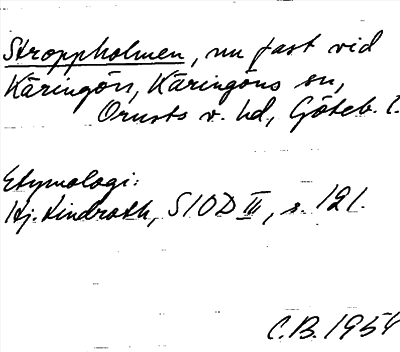 Stroppholmen, nu fast vid
Käringön, Käringöns sn,
Orusts v. hd, Göteb. l.
Etymologi:
Hj. Lindroth, SIOD III, s. 121.
C.B. 1954